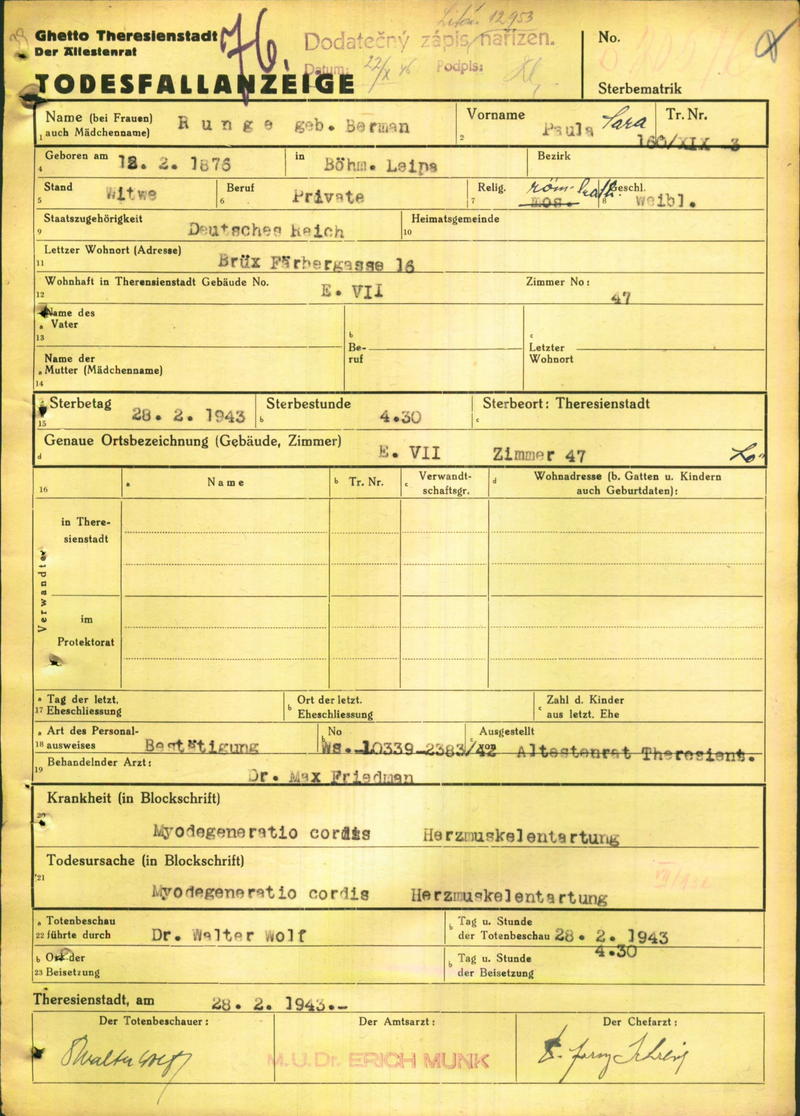 Ghetto Theresienstadt
Der Ältestenrat
TODESFALLANZEIGE
76.
Dodatečný zápis nařízen.
Datum: 22/X 46 Podpis:
No.
Sterbematrik
Name (bei Frauen)
1 auch Mädchenname)
Runge geb. Berman
Vorname
2
Paula Sara
Tr. Nr.
160/XIX 3
Geboren am
4
12. 2. 1876
in
Böhm. Leipa
Bezirk
Stand
5
Witwe
Beruf
6
Private
Relig.
7
röm-kath.
mos.
Geschl.
8
weibl.
Staatszugehörigkeit
9
Deutsches Reich
Heimatsgemeinde
10
Lettzer Wohnort (Adresse)
11
Brüx Färbergasse 16
Wohnhaft in Therensienstadt Gebäude No.
12
E. VII
Zimmer No:
47
Name des
a Vater
13
Name der
a Mutter (Mädchenname)
14
b
Be-
ruf
c
Letzter
Wohnort
Sterbetag
15
28. 2. 1943
Sterbestunde
b
4.30
Sterbeort: Theresienstadt
c
Genaue Ortsbezeichnung (Gebäude, Zimmer)
d
E. VII Zimmer 47
16
a Name
b Tr. Nr.
c Verwandt-
schaftsgr.
d Wohnadresse (b. Gatten u. Kindern
auch Geburtdaten):
Verwandte
in There-
sienstadt
im
Protektorat
a Tag der letzt.
17 Eheschliessung
b Ort der letzt.
Eheschliessung
c Zahl d. Kinder
aus letzt. Ehe
a Art des Personal-
18 ausweises
Bestätigung
b No
Ws.-10339-2383/42
c Ausgestellt
Altestenrat Theresient.
Behandelnder Arzt:
19
Dr. Max Friedman
Krankheit (in Blockschrift)
20
Myodegeneratio cordis Herzmuskelentartung
Todesursache (in Blockschrift)
21
Myodegeneratio cordis Herzmuskelentartung
a Totenbeschau
22 führte durch
Dr. Walter Wolf
b Tag u. Stunde
der Totenbeschau
28. 2. 1943
4.30
b Ort der
23 Beisetzung
b Tag u. Stunde
der Beisetzung
Theresienstadt, am 28. 2. 1943.-
Der Totenbeschauer:
Der Amtsarzt:
M.U.Dr. ERICH MUNK
Der Chefarzt: